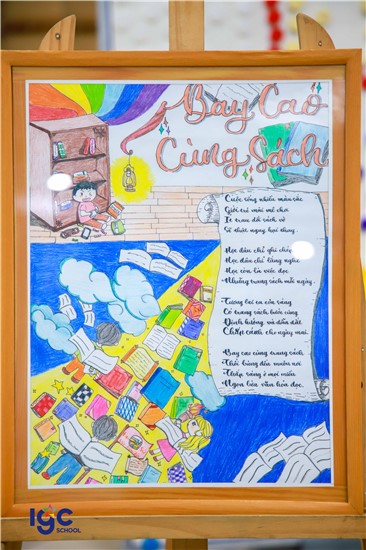 Bay Cao
Cùng Sách
Cuộc sống nhiều màu sắc
Giới trẻ mải mê chơi
Sẽ thật nguy hại thay.
Học đâu chỉ ghi chép
Học đâu chỉ lắng nghe
Học còn là việc đọc
Những trang sách mỗi ngày.
Tương lai ta tỏa sáng
Có trang sách bước cùng
Định hướng và dẫn dắt
Chắp cánh cho ngày mai.
Bay cao cùng trang sách
Thắp sáng ở mọi miền
Ngọn lửa văn hóa đọc.
IGC
SCHOOL